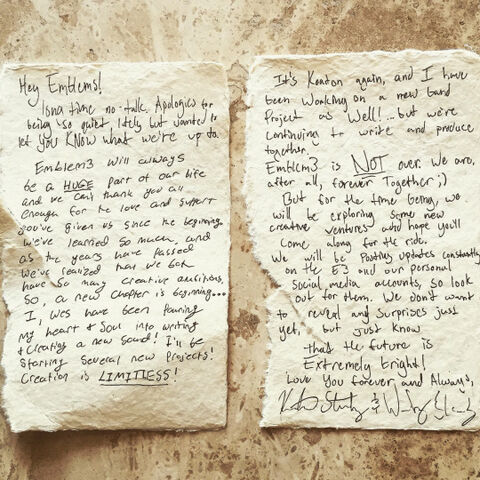 Hey Emblems!
Long time no-talk. Apologies for
being so quiet, lately but wanted to
let you KNOW what we're up to.
Emblem3 will always
be a HUGE part of our life
and we can't thank you all
enough for the love and support
you've given us since the beginning.
We've learned so much, and
as the years have passed
we've realized that we both
have so many creative ambitions.
So, a new chapter is beginning...
I, Wes have been pouring
my heart & soul into writing
& creating a new sound! I'll be
Starting several new projects!
Creation is LIMITLESS!
It's Keaton again, and I have
been working on a new band
Project as Well!...but we're
continuing to write and produce
together.
Emblem3 is NOT over. We are,
after all, forever Together ;)
But for the time being, we
will be exploring some new
creative ventures and hope you'll
come along for the ride.
We will be Posting updates constantly
on the E3 and our personal
social media accounts, so look
out for them. We don't want
to reveal any surprises just
yet, but just know
that the future is
Extremely bright!
Love You forever and Always,